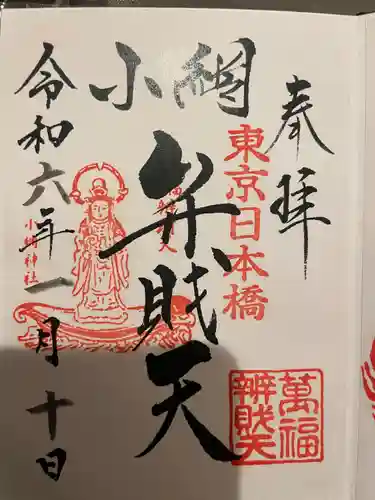 奉拝
東京日本橋
萬福
辨財天
小網
弁財天
小網神社
令和六年一月十日